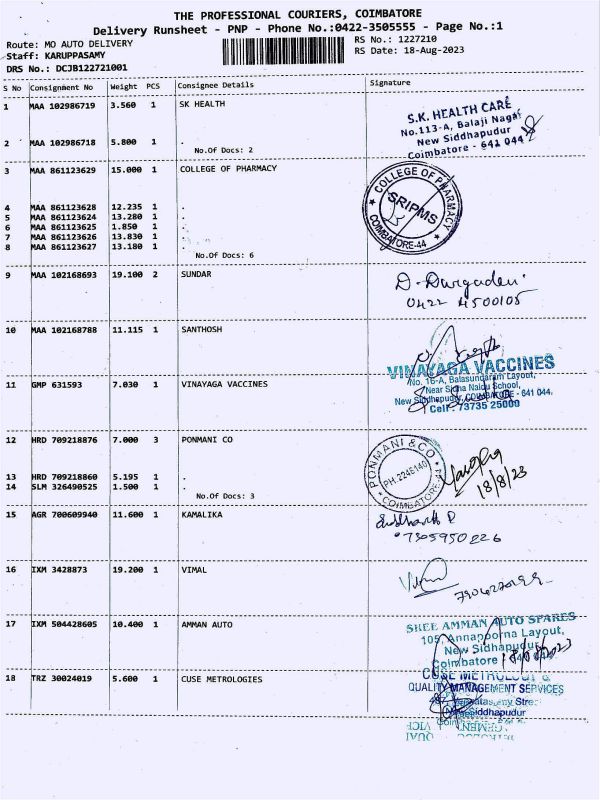 THE PROFESSIONAL COURIERS, COIMBATORE
Delivery Runsheet - PNP - Phone No.:0422-3505555 - Page No.:1
Route: MO AUTO DELIVERY
RS No.: 1227210
Staff: KARUPPASAMY
RS Date: 18-Aug-2023
DRS No.: DCJB122721001
S No Consignment No Weight PCS Consignee Details Signature
1 MAA 102986719 3.560 1 SK HEALTH
S.K. HEALTH CARE
No.113-A, Balaji Nagar
New Siddhapudur
Coimbatore - 641 044
2 MAA 102986718 5.800 1 .
No.Of Docs: 2
3 MAA 861123629 15.000 1 COLLEGE OF PHARMACY
COLLEGE OF PHARMACY
SRIPMS
COIMBATORE-44
4 MAA 861123628 12.235 1 .
5 MAA 861123624 13.280 1 .
6 MAA 861123625 1.850 1 .
7 MAA 861123626 13.830 1 .
8 MAA 861123627 13.180 1 .
No.Of Docs: 6
9 MAA 102168693 19.100 2 SUNDAR
D. Durgadevi
0422 4500105
10 MAA 102168788 11.115 1 SANTHOSH
VINAYAGA VACCINES
No. 16-A, Balasundaram Layout,
Near Naidu School,
New Siddhapudur, COIMBATORE - 641 044.
Cell : 73735 25000
11 GMP 631593 7.030 1 VINAYAGA VACCINES
12 HRD 709218876 7.000 3 PONMANI CO
PONMANI & CO
PH:2246140
COIMBATORE-44
18/8/23
13 HRD 709218860 5.195 1 .
14 SLM 326490525 1.500 1 .
No.Of Docs: 3
15 AGR 700609940 11.600 1 KAMALIKA
Siddharth R
7305950226
16 IXM 3428873 19.200 1 VIMAL
17 IXM 504428605 10.400 1 AMMAN AUTO
SHREE AMMAN AUTO SPARES
105, Annapoorna Layout,
New Sidhapudur
Coimbatore
18 TRZ 30024019 5.600 1 CUSE METROLOGIES
CUSE METROLOGY &
QUALITY MANAGEMENT SERVICES